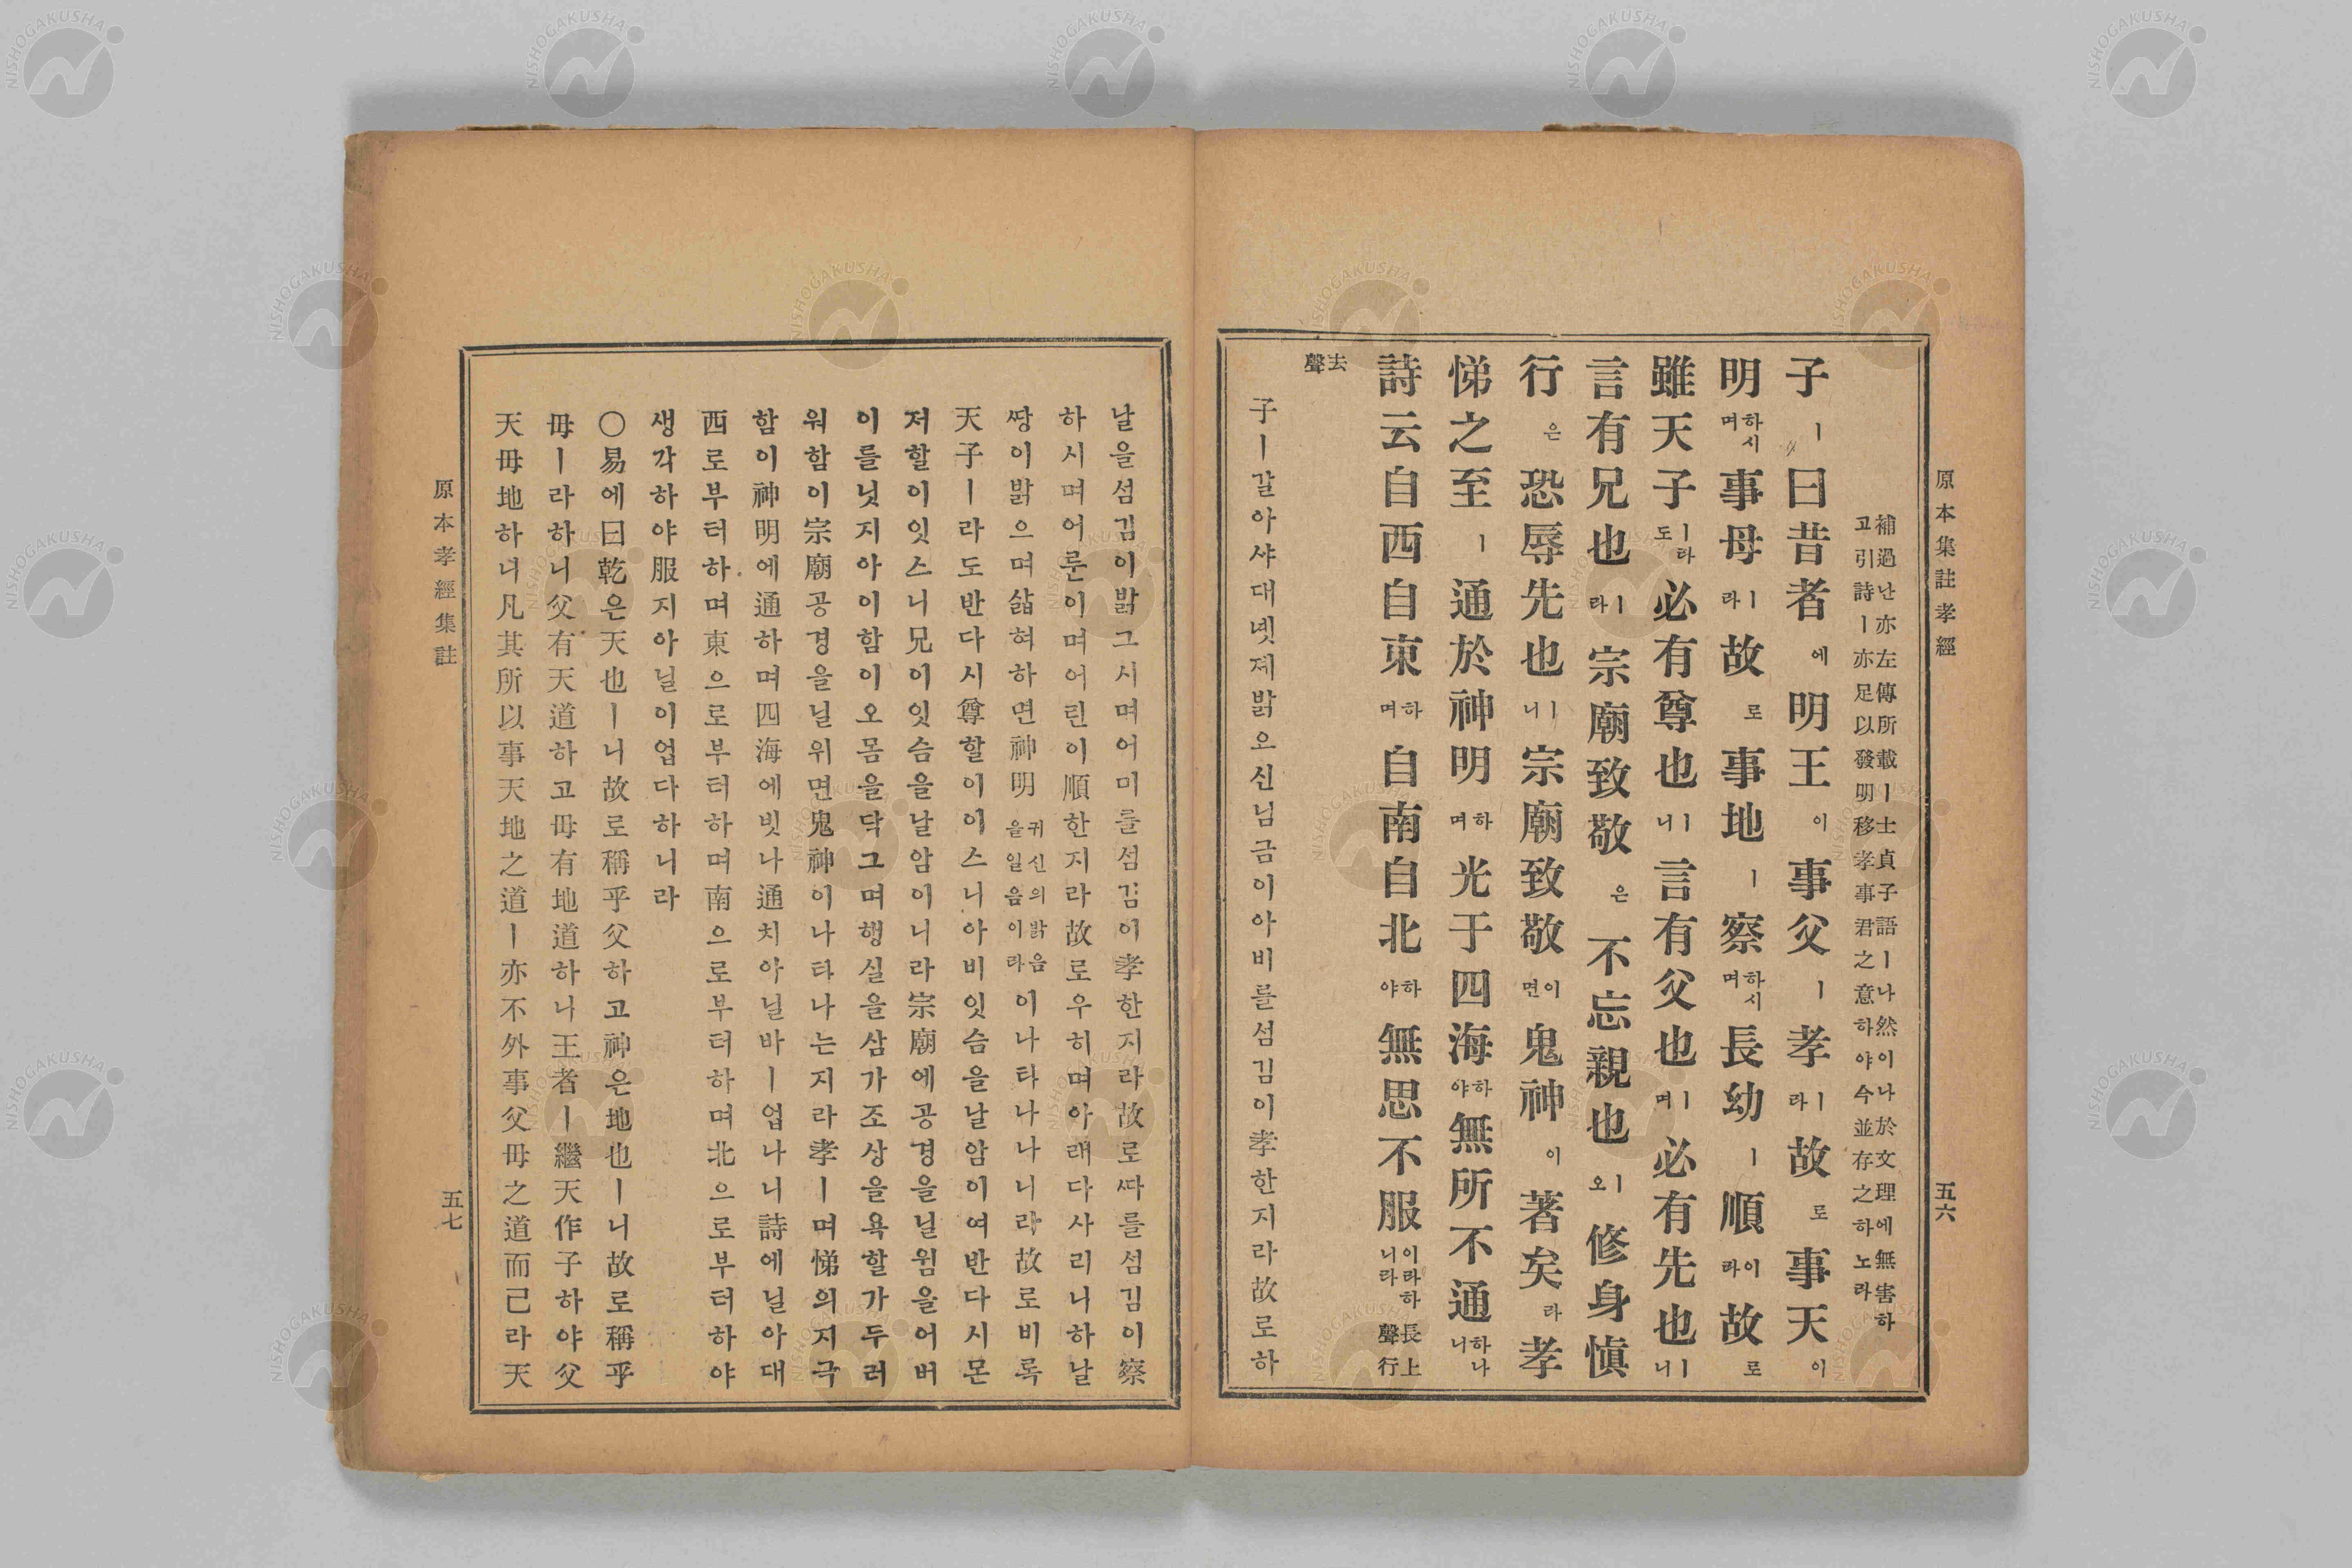 原本集註孝經
五六
補過난亦左傳所載ㅣ士貞子語ㅣ나然이나於文理에無害하
고引詩ㅣ亦足以發明移孝事君之意하야今並存之하노라
子ㅣ曰昔者에明王이事父ㅣ孝ㅣ라故로事天이
明하시며事母ㅣ라故로事地ㅣ察하시며長幼ㅣ順이라故로
雖天子ㅣ라도必有尊也ㅣ니言有父也ㅣ며必有先也ㅣ니
言有兄也ㅣ라宗廟致敬은不忘親也ㅣ오修身愼
行은恐辱先也ㅣ니宗廟致敬이면鬼神이著矣라孝
悌之至ㅣ通於神明하며光于四海하야無所不通하나니
詩云自西自東하며自南自北하야無思不服이라하니라長上聲行
去聲
子ㅣ갈아샤대녯제밝으신님금이아비를섬김이孝한지라故로하
날을섬김이밝그시며어미를섬김이孝한지라故로따를섬김이察
하시며어룬이며어린이順한지라故로우히며아래다사리니하날
땅이밝으며삷혀하면神明귀신의밝음을일음이라이나타나나니라故로비록
天子ㅣ라도반다시尊할이이스니아비잇슴을날암이여반다시몬
저할이잇스니兄이잇슴을날암이니라宗廟에공경을닐윔을어버
이를닛지아이함이오몸을닥그며행실을삼가조상을욕할가두러
워함이宗廟공경을닐위면鬼神이나타나는지라孝ㅣ며悌의지극
함이神明에通하며四海에빗나通치아닐바ㅣ업나니詩에닐아대
西로부터하며東으로부터하며南으로부터하며北으로부터하야
생각하야服지아닐이업다하니라
〇易에曰乾은天也ㅣ니故로稱乎父하고神은地也ㅣ니故로稱乎
毋ㅣ라하니父有天道하고毋有地道하나王者ㅣ繼天作子하야父
天毋地하너凡其所以事天地之道ㅣ亦不外事父毋之道而已라天
原本孝經集註
五七